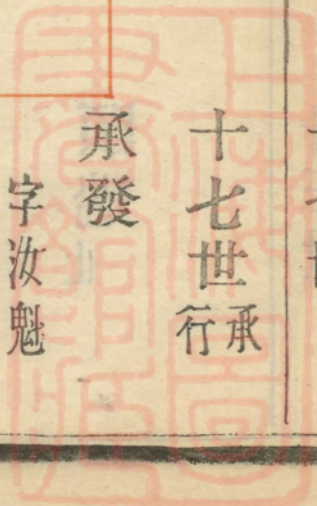 十七世承行
承發
字汝魁